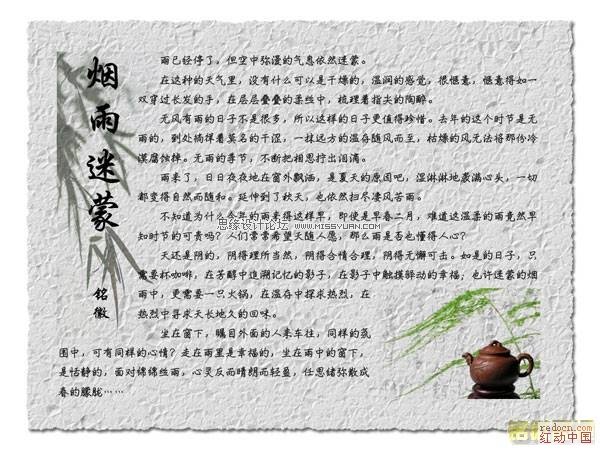 烟雨迷蒙
铭徽
雨已轻停了，但空中弥漫的气息依然迷蒙。
在这种的天气里，没有什么可以是干燥的，温润的感觉，很惬意，惬意得如一
双穿过长发的手，在层层叠叠的柔丝中，梳理着指尖的陶醉。
无风有雨的日子不是很多，所以这样的日子更值得珍惜。去年的这个时节是无
雨的，到处搞烊着莫名的干涩，一抹远方的温存随风而至，枯燥的风无法将那份冷
漠腐蚀掉。无雨的季节，不断把相思拧出泪滴。
雨来了，日日夜夜地在窗外飘洒，是夏天的原因吧，湿淋淋地蒙满心头，一切
都变得自然而随和。延伸到了秋天，也依然扫尽凄风苦雨。
不知道为什么今年的雨来得这样早，即使是早春二月，难道这温柔的雨竟然早
知时节的可贵吗？人们常常希望天随人愿，那么雨是否也懂得人心？
天还是阴的，阴得理所当然，阴得合情合理，阴得无懈可击。如是的日子，只
需要杯咖啡，在芳醇中追溯记忆的影子，在影子中触摸驿动的幸福，也许迷蒙的烟
雨中，更需要一只火锅，在温存中探求热烈，在
热烈中寻求天长地久的回味。
坐在窗下，瞩目外面的人来车往，同样的氛
围中，可有同样的心情？走在雨里是幸福的，坐在雨中的窗下，
是恬静的，面对绵绵丝雨，心灵反而晴朗而轻盈，任思绪弥散成
春的朦胧……
思缘设计论坛
WWW.MISSYUAN.COM
redocn.com
红动中国